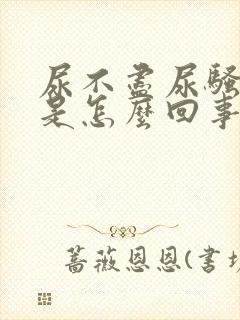 尿不盡尿騷
是怎麼回事
薔薇恩恩(書坊